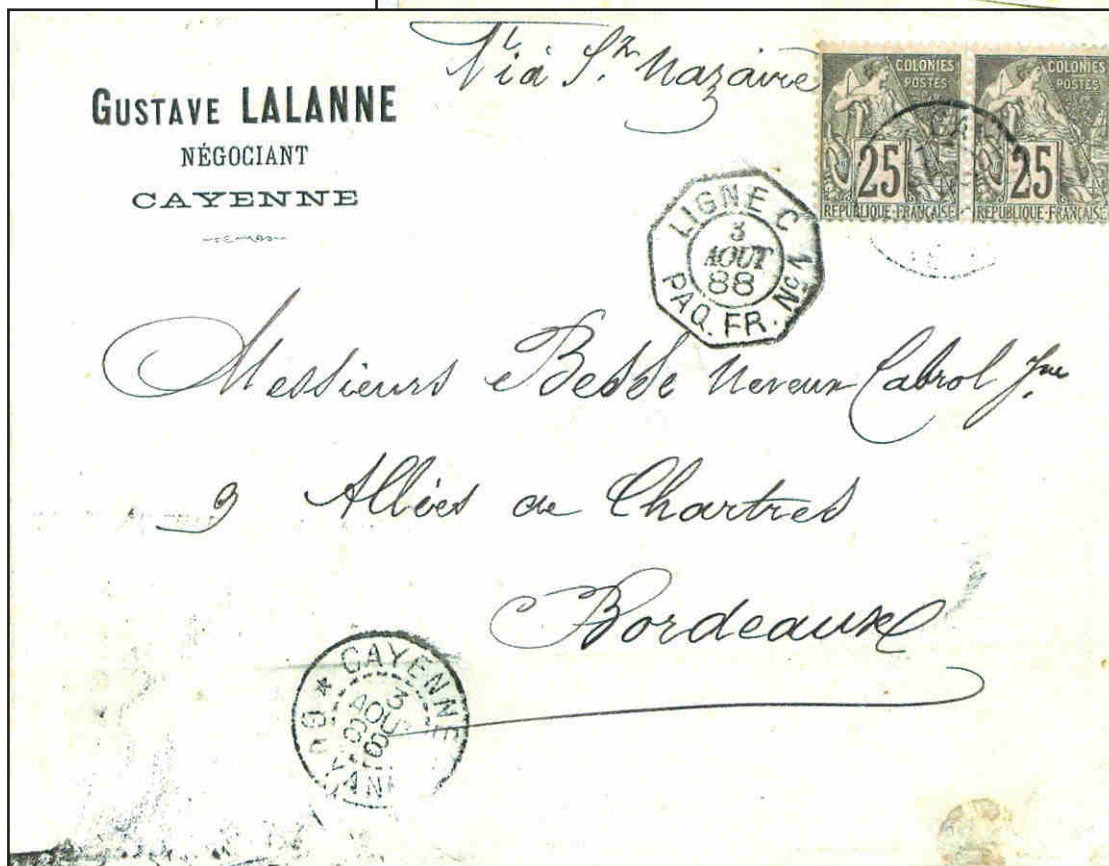 Viâ St. Nazaire
GUSTAVE LALANNE
NÉGOCIANT
CAYENNE
COLONIES
POSTES
25
RÉPUBLIQUE·FRANÇAISE
COLONIES
POSTES
25
RÉPUBLIQUE·FRANÇAISE
LIGNE C
3
AOUT
88
PAQ. FR. No
Messieurs Besse Neveux Cabrol Jne
9 Allées de Chartres
Bordeaux
CAYENNE
3
AOU
88